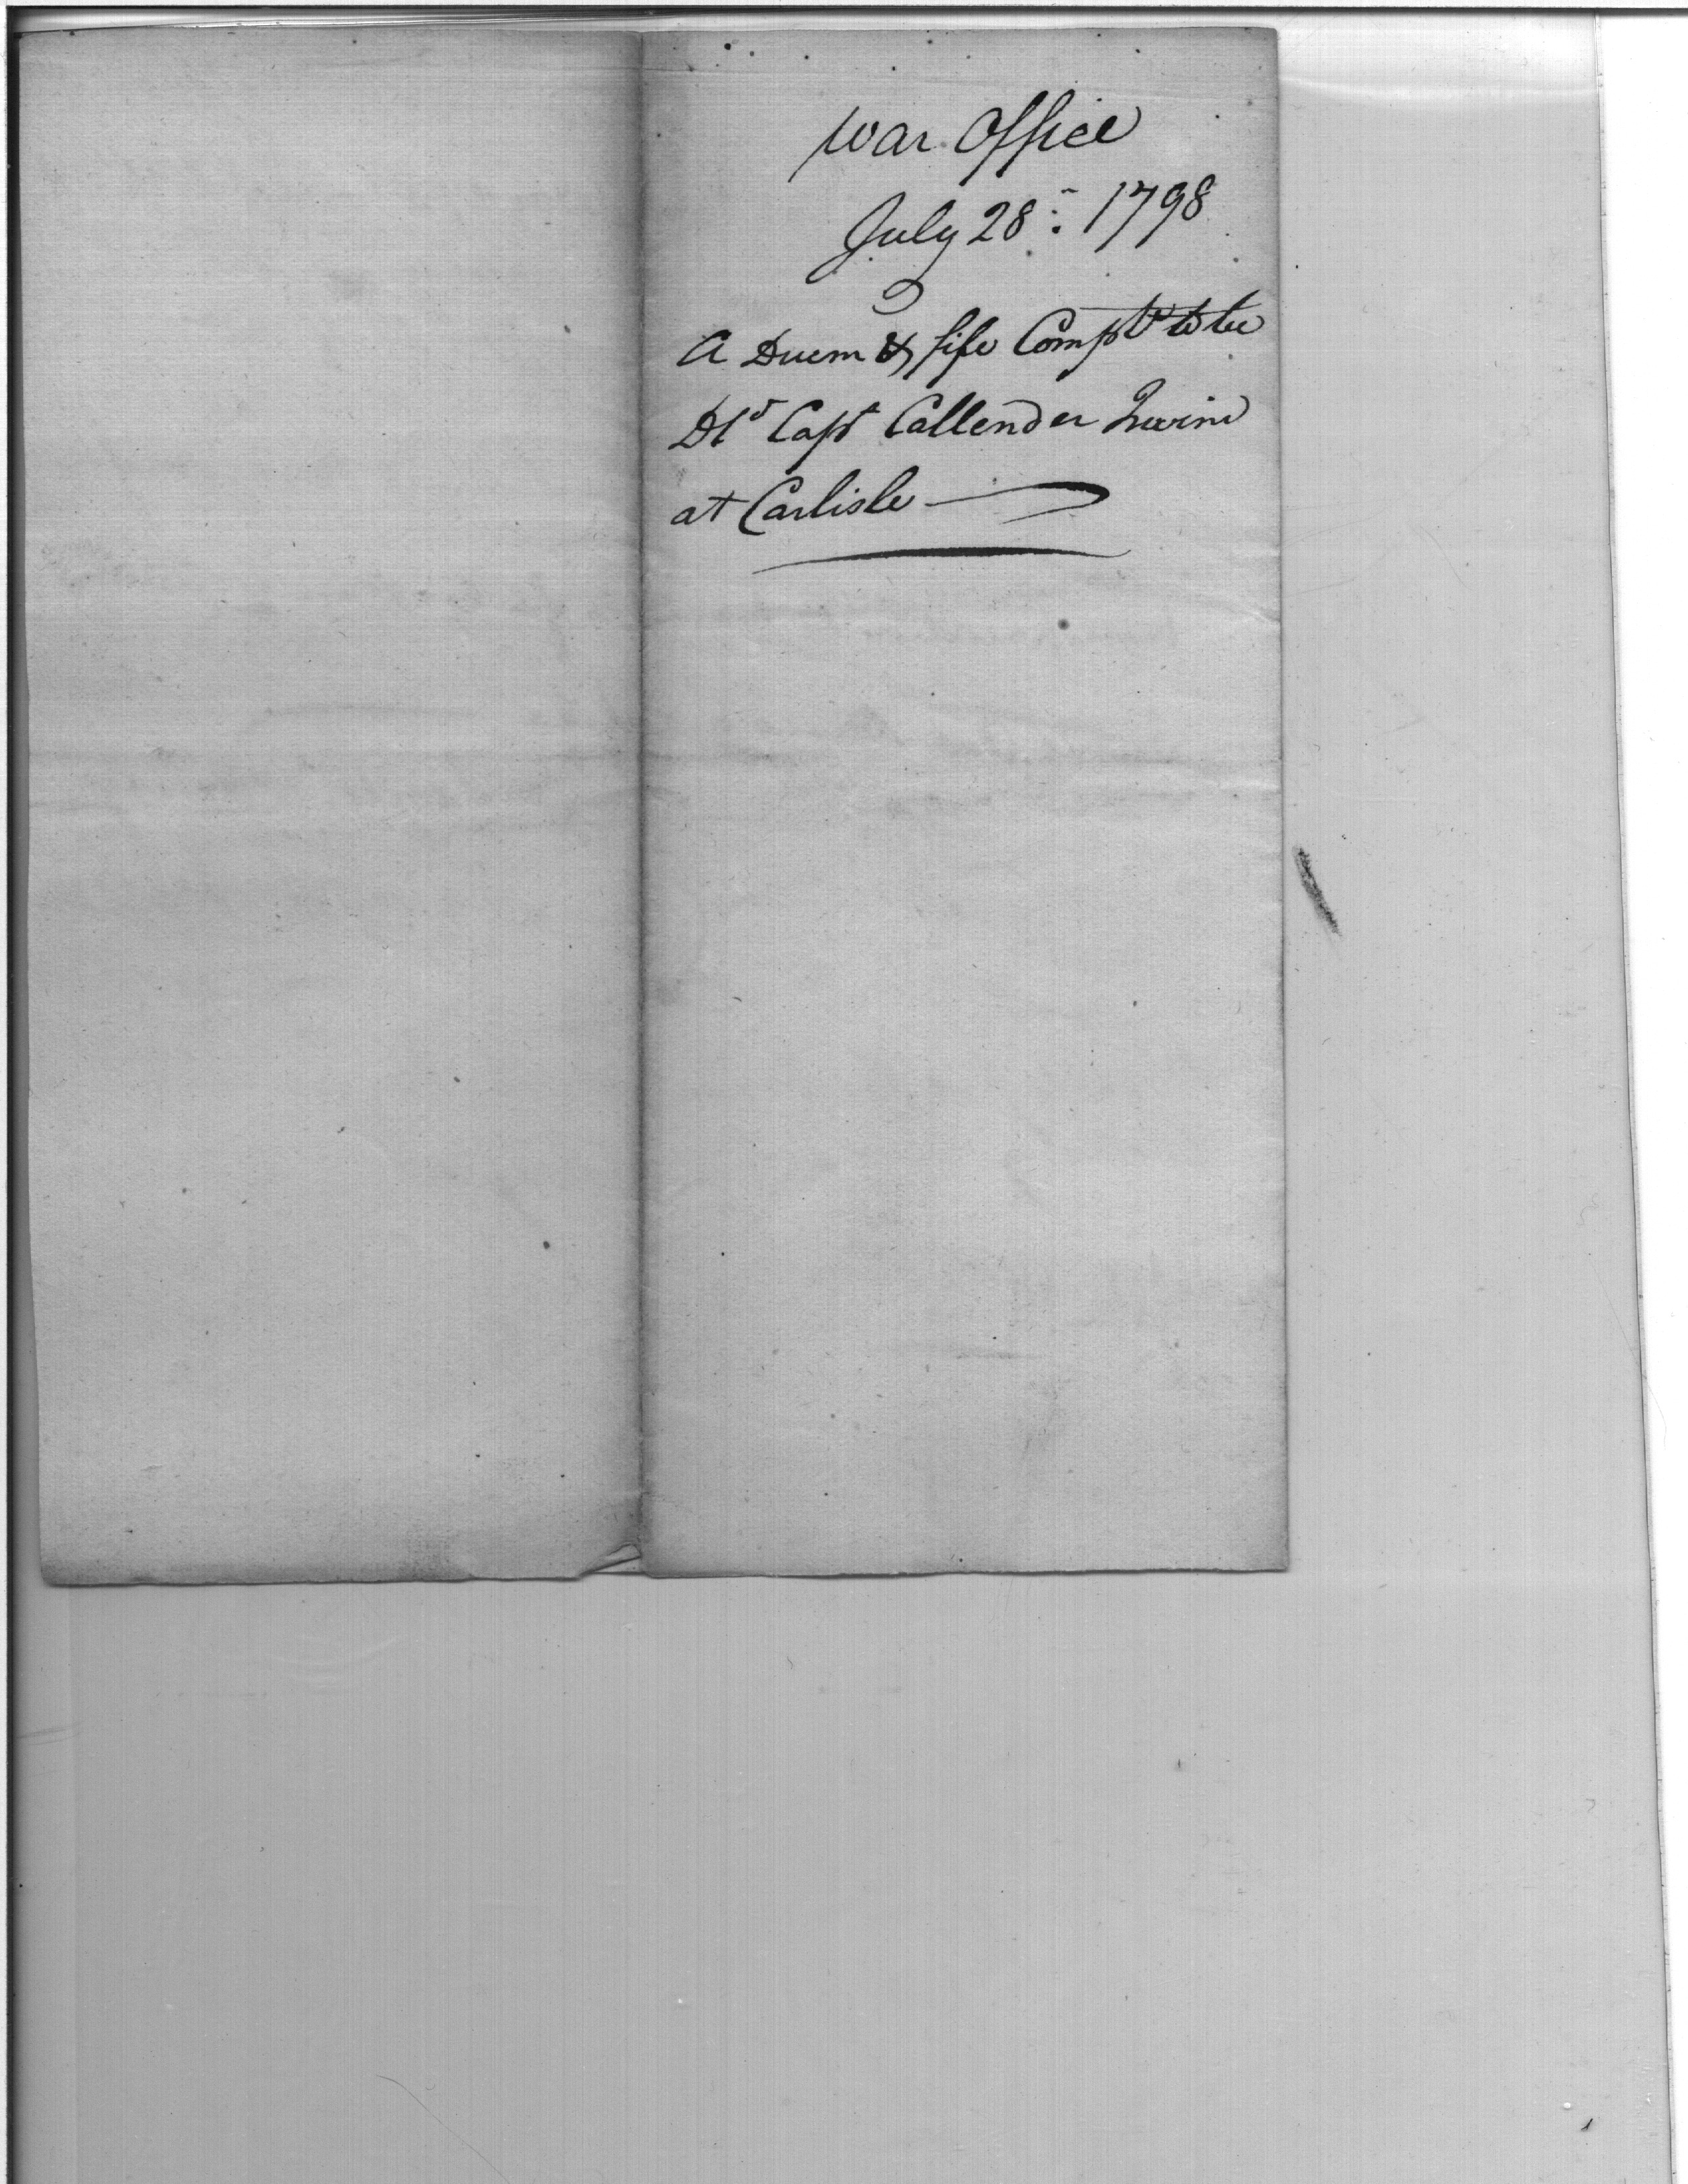 War Office
July 28th 1798
A Drum & fife Compt to be
Dld Capt Callender Irvine
at Carlisle